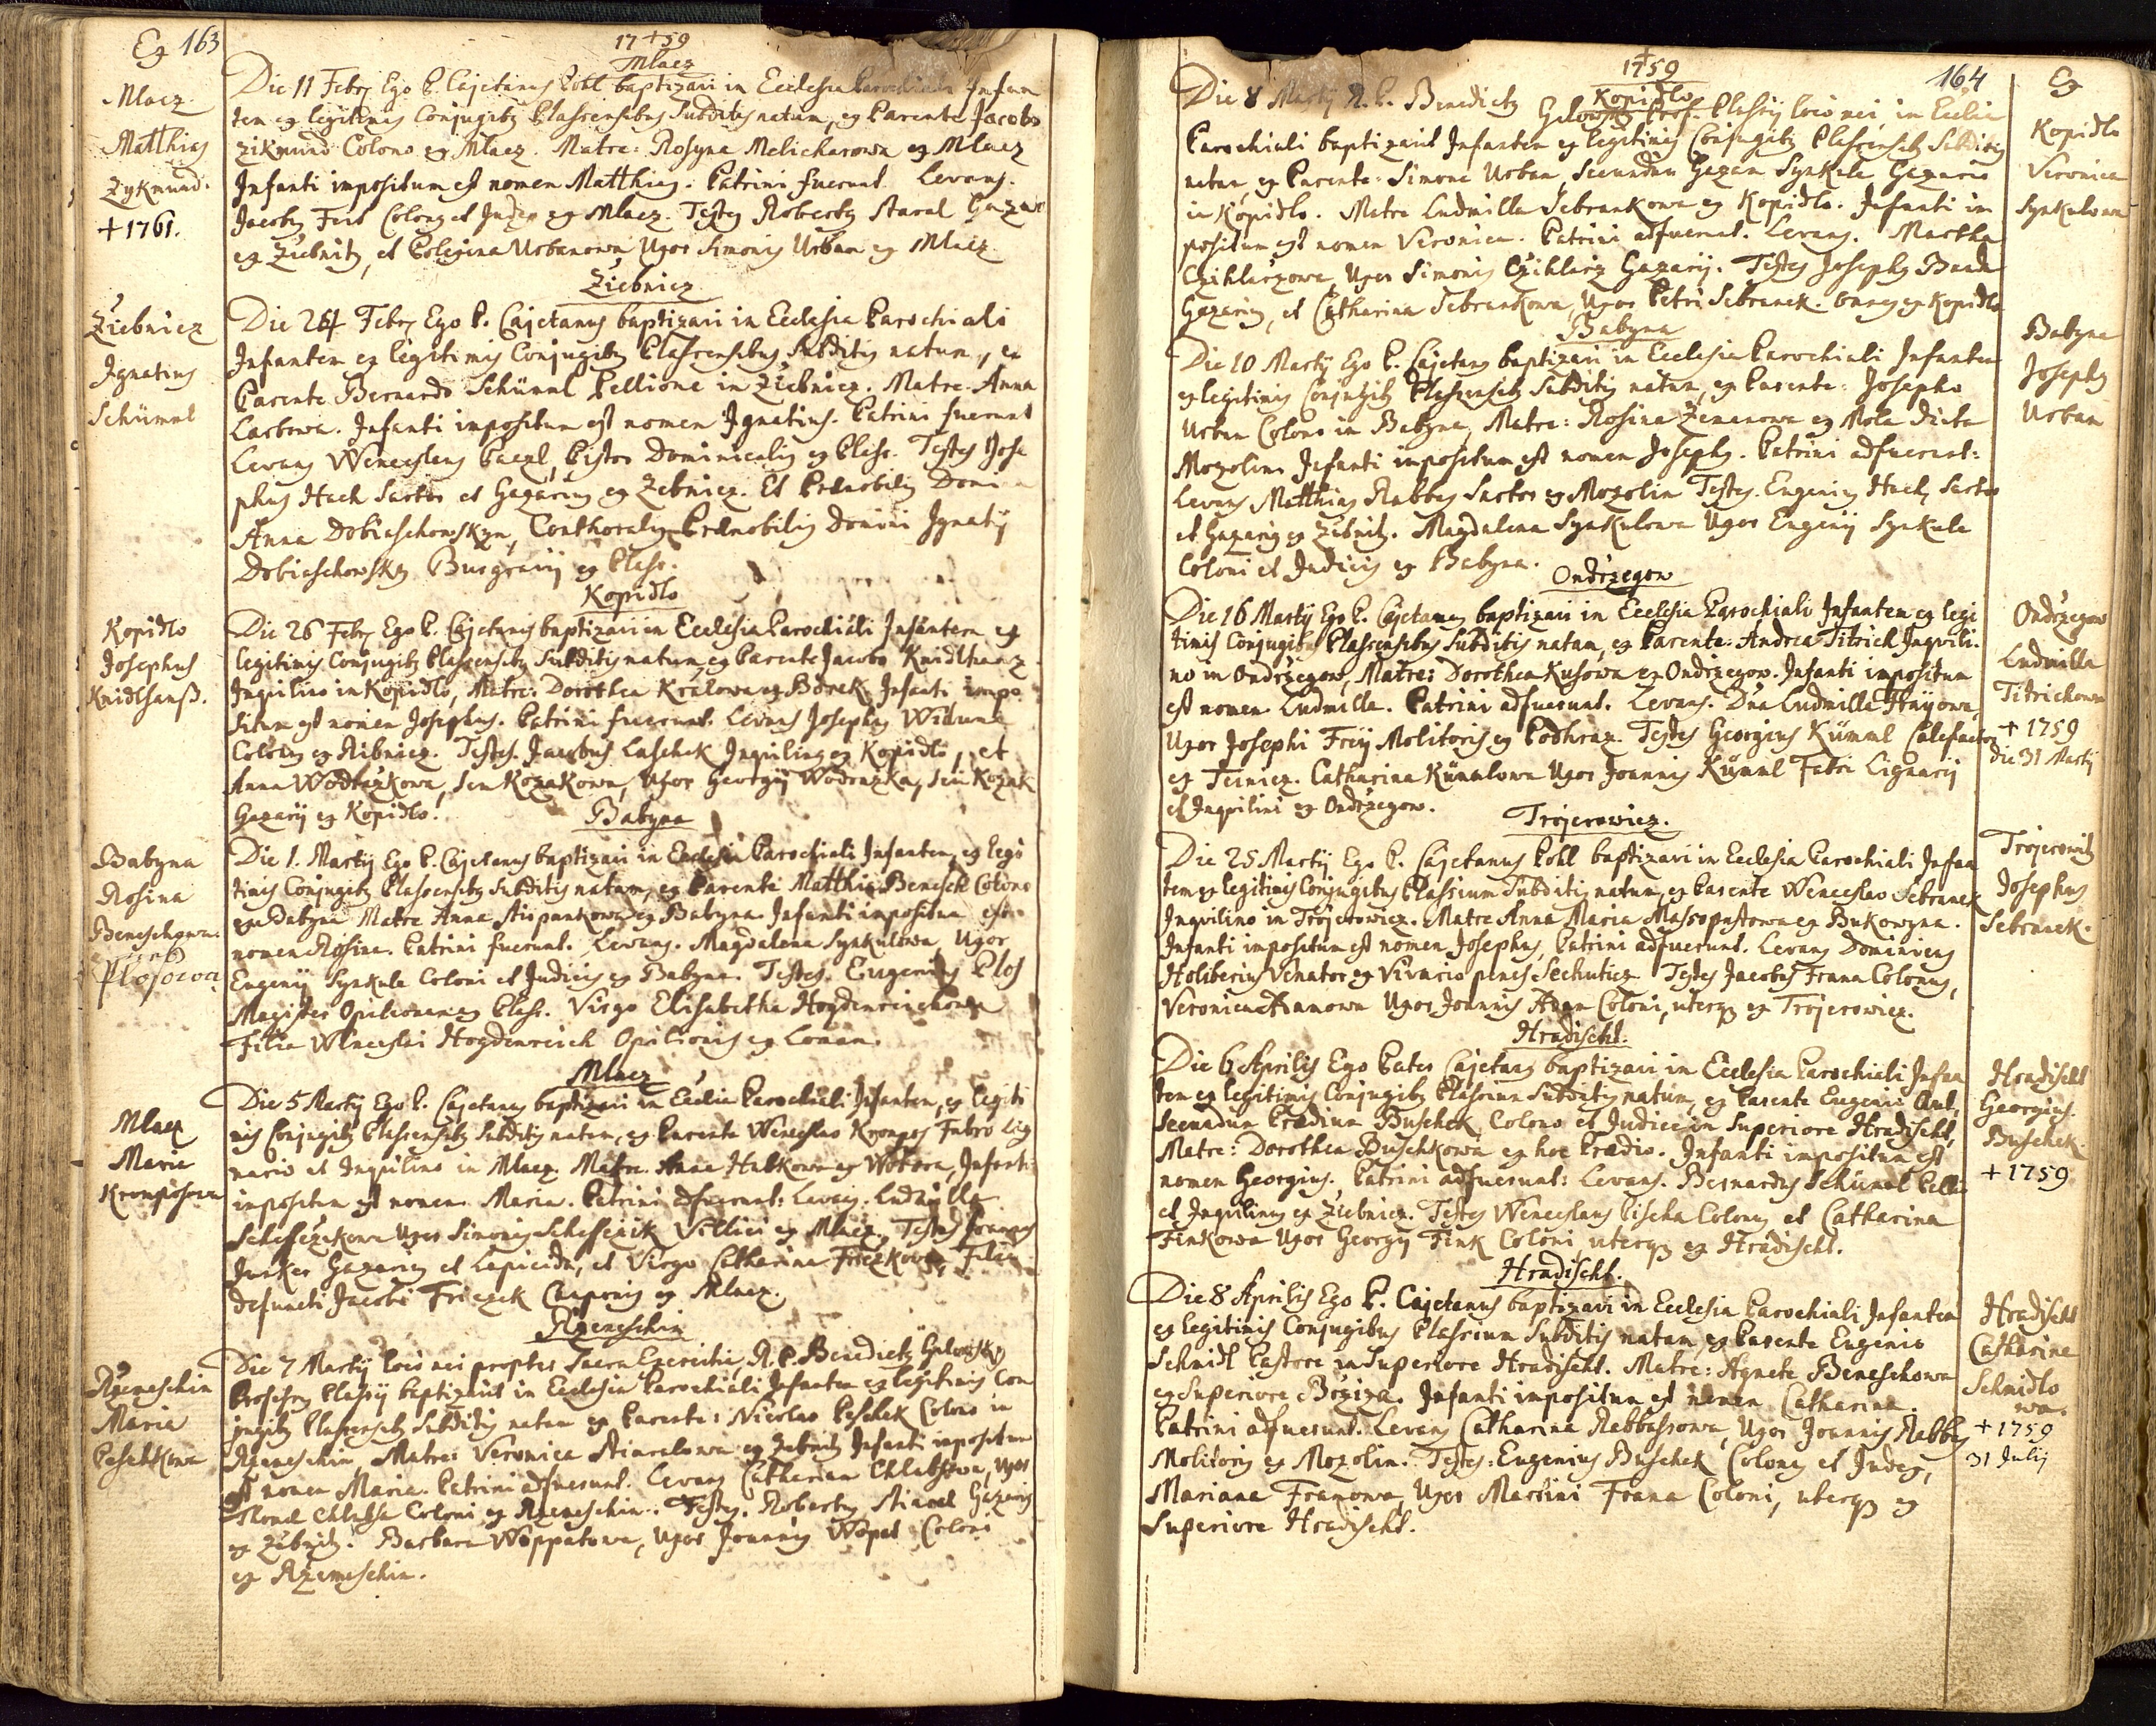 Ex 163
17+59
Mlacz
Mlacz
Matthias
Zykmund.
+ 1761.
Die 11 Febr. Ego P. Cajetanus Pohl baptizavi in Ecclesia Parochiali Infan
tem ex legitimis Conjugibus Plassensibus Subditis natum, ex Parente Jacobo
Zikmund Colono ex Mlacz. Matre: Rosyna Melicharowa ex Mlacz
Infanti impositum est nomen Matthias. Patrini fuerunt Levans.
Jacobus Colonus et Judex ex Mlacz. Testes Robertus Staral Gazar
ex Ziebnitz, et Urbanowa, Uxor Simonis Urban ex Mlacz.
Ziebnicz
Ziebnicz
Ignatius
Schümml
Die 24 Febr. Ego P. Cajetanus baptizavi in Ecclesia Parochiali
Infantem ex legitimis Conjugibus Plassensibus Subditis natum, ex
Parente Bernardo Schümml Pellione in Ziebnicz. Matre Anna
Infanti impositum est nomen Ignatius. Patrini fuerunt
Levans Wenceslaus Pistor Dominicalis ex Plass. Testes Jose
phus Hach Sartor et Gazarius ex Zebnicz. Et Praenobilis Domina
Anna Dobiaschowskyn, Conthoralis Praenobilis Domini Ignatij
Dobiaschowsky Burgravij ex Plass.
Kopidlo
Kopidlo
Josephus
Knidlhanß.
Die 26 Febr. Ego P. Cajetanus baptizavi in Ecclesia Parochiali Infantem ex
legitimis Conjugibus Plassensibus Subditis natum, ex Parente Jacobo Knidlhanz
Inquilino in Kopidlo, Matre: Dorothea Kralowa ex Borek. Infanti impo
situm est nomen Josephus. Patrini fuerunt. Levans Josephus
Colonus ex Ribnicz. Testes. Jacobus Laschek Inquilinus ex Kopidlo, et
Anna Wodrazkowa, seu Kozakowa, Uxor Georgij Wodrazka, seu Kozak
Gazarij ex Kopidlo.
Babyna
Babyna
Rosina
Beneschowa.
Plosowa
Die 1. Martij Ego P. Cajetanus baptizavi in Ecclesia Parochiali Infantem, ex legi
timis Conjugibus Plassensibus Subditis natam, ex Parente Matthia Benesch Colono
ex Babyna Matre Anna ex Babyna. Infanti impositum est
nomen Rosina. Patrini fuerunt. Levans. Magdalena Synkulowa, Uxor
Eugenij Synkule Coloni et Judicis ex Babyna. Testes. Eugenius Plos
Magister Opilionum ex Plass. Virgo Elisabetha Hoydenreichowa
Filia Wenceslai Hoydenreich Opilionis ex Loman.
Mlacz
Mlacz
Maria
Kromposowa
Die 5 Martij Ego P. Cajetanus baptizavi in Ecclesia Parochiali Infantem, ex legiti
mis Conjugibus Plassensibus Subditis natam, ex Parente Wenceslao Krompos Fabro Lig
nario et Inquilino in Mlacz. Matre Anna ex Infanti
impositum est nomen. Maria. Patrini adfuerunt: Levans. Ludmilla
Uxor Simonis Villici ex Mlacz. Testes Joannes
Junker Gazarius et Lapicida, et Virgo Catharina Friczkowa, Filia
defuncti Jacobi Friczek ex Mlacz.
Rzemeschin
Rzemeschin
Maria
Peschkowa
Die 7 Martij loco mei propter Sacra Exercitia, R. P. Benedictus
Professus Plassij baptizavit in Ecclesia Parochiali Infantem ex legitimis Con
jugibus Plassensibus Subditis natam ex Parente: Nicolao Peschek Colono in
Rzemeschin, Matre: Veronica ex Zebnitz Infanti impositum
est nomen Maria. Patrini adfuerunt. Levans Catharina Chlebsowa, Uxor
Coloni ex Rzemeschin. Testes. Robertus Stiaral Gazarius
ex Zebnitz. Barbara Woppatowa, Uxor Joannis Wopat Coloni
ex Rzemeschin.
1759
164
Ex
Kopidlo
Kopidlo
Veronica
Synkulowa
Die 8 Martij R. P. Benedictus Prof. Plassij loco mei, in Ecclia
Parochiali baptizavit Infantem ex legitimis Conjugibus Plassensibus Subditis
natam ex Parente: Simone Urban, secundum Gazam Synkule Gazario
in Kopidlo. Matre Ludmilla Sebrankowa ex Kopidlo. Infanti im
positum est nomen Veronica. Patrini adfuerunt. Levans. Martha
Czihlarzowa, Uxor Simonis Czihlarz Gazarij. Testes Josephus
Gazarius, et Catharina Sebrankowa, Uxor Petri Sebranek. omnes ex Kopidlo
Babyna
Babyna
Josephus
Urban
Die 10 Martij Ego P. Cajetanus baptizavi in Ecclesia Parochiali Infantem
ex legitimis Conjugibus Plassensibus Subditis natum, ex Parente: Josepho
Urban Colono in Babyna, Matre: Rosina Zemanowa ex Mola dicta
Mozolin. Infanti impositum est nomen Josephus. Patrini adfuerunt:
Levans Matthias Rabbas Sartor ex Mozolin Testes. Eugenius Hach, Sartor
et Gazarius ex Zebnitz. Magdalena Synkulowa Uxor Eugenij Synkule
Coloni et Judicis ex Babyna.
Ondrzegow
Ondrzegow
Ludmilla
Titrichowa
+ 1759
die 31 Martij
Die 16 Martij Ego P. Cajetanus baptizavi in Ecclesia Parochiali Infantem ex legi
timis Conjugibus Plassensibus Subditis natam, ex Parente: Andrea Titrich Inquili
no in Ondrzegow, Matre: Dorothea Kusowa ex Ondrzegow. Infanti impositum
est nomen. Ludmilla. Patrini adfuerunt. Levans. Dna Ludmilla Frayowa,
Uxor Josephi Frey Molitoris ex Podhraz. Testes Georgius Kümml Calefactor
ex Teinicz. Catharina Kümmlowa Uxor Joannis Kümml Fabri Lignarij
et Inquilini ex Ondrzegow.
Trojerowicz.
Trojerowitz
Josephus
Sebranek.
Die 25 Martij Ego P. Cajetanus Pohl baptizavi in Ecclesia Parochiali Infan
tem ex legitimis Conjugibus Plassium Subditis natum, ex Parente Wenceslao Sebranek
Inquilino in Trojerowicz. Matre Anna Maria Massopustowa ex Bukowyna.
Infanti impositum est nomen Josephus, Patrini adfuerunt. Levans Dominicus
Holiberius Venator ex Vivario penes Sechuticz Testes Jacobus Frana Colonus,
Veronica Uxor Joannis Coloni, uterque ex Trojerowicz.
Hradischt.
Hradischt
Georgius.
Buschek.
+ 1759
Die 6 Aprilis Ego Pater Cajetanus baptizavi in Ecclesia Parochiali Infan
tem ex legitimis Conjugibus Plassium Subditis natum, ex Parente Eugenio
secundum Praedium Buschek Colono et Judice in Superiore Hradischt,
Matre: Dorothea Buschkowa ex hoc Praedio. Infanti impositum est
nomen Georgius. Patrini adfuerunt: Levans. Bernardus Schümml Pellio
et Inquilinus ex Ziebnicz. Testes Wenceslaus Pischa Colonus et Catharina
Finkowa Uxor Georgij Fink Coloni, uterque ex Hradischt.
Hradischt.
Hradischt
Catharina
Schmidlo
wa.
+ 1759
31 Julij
Die 8 Aprilis Ego P. Cajetanus baptizavi in Ecclesia Parochiali Infantem
ex legitimis Conjugibus Plassium Subditis natam, ex Parente Eugenio
Schmidl Pastore in Superiore Hradischt. Matre: Agnete Beneschowa
ex Superiore Brziza. Infanti impositum est nomen Catharina.
Patrini adfuerunt. Levans Catharina Rabbassowa, Uxor Joannis Rabbas
Molitoris ex Mozolin. Testes: Eugenius Buschek Colonus et Judex,
Mariana Franowa, Uxor Martini Frana Coloni, uterque ex
Superiore Hradischt.